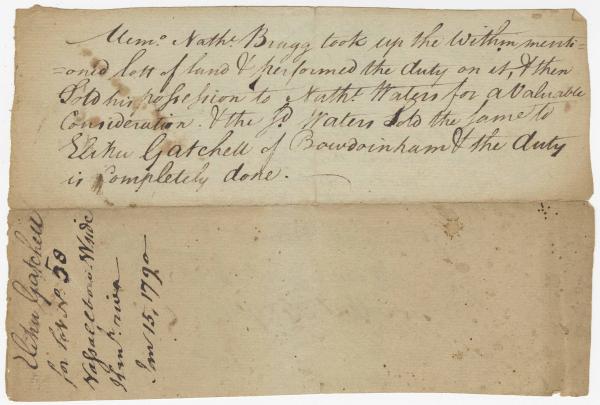 Memo. Nathl. Bragg took up the Within menti-
=oned lott of land & performed the duty on it, & then
Sold his possession to Nathl. Waters for a Valuable
Consideration. & the sd. Waters Sold the same to
Elihu Gatchell of Bowdoinham & the duty
is Completely done.
Elihu Gatchell
for Lot No. 58
Vassalboro
Jan 15, 1790